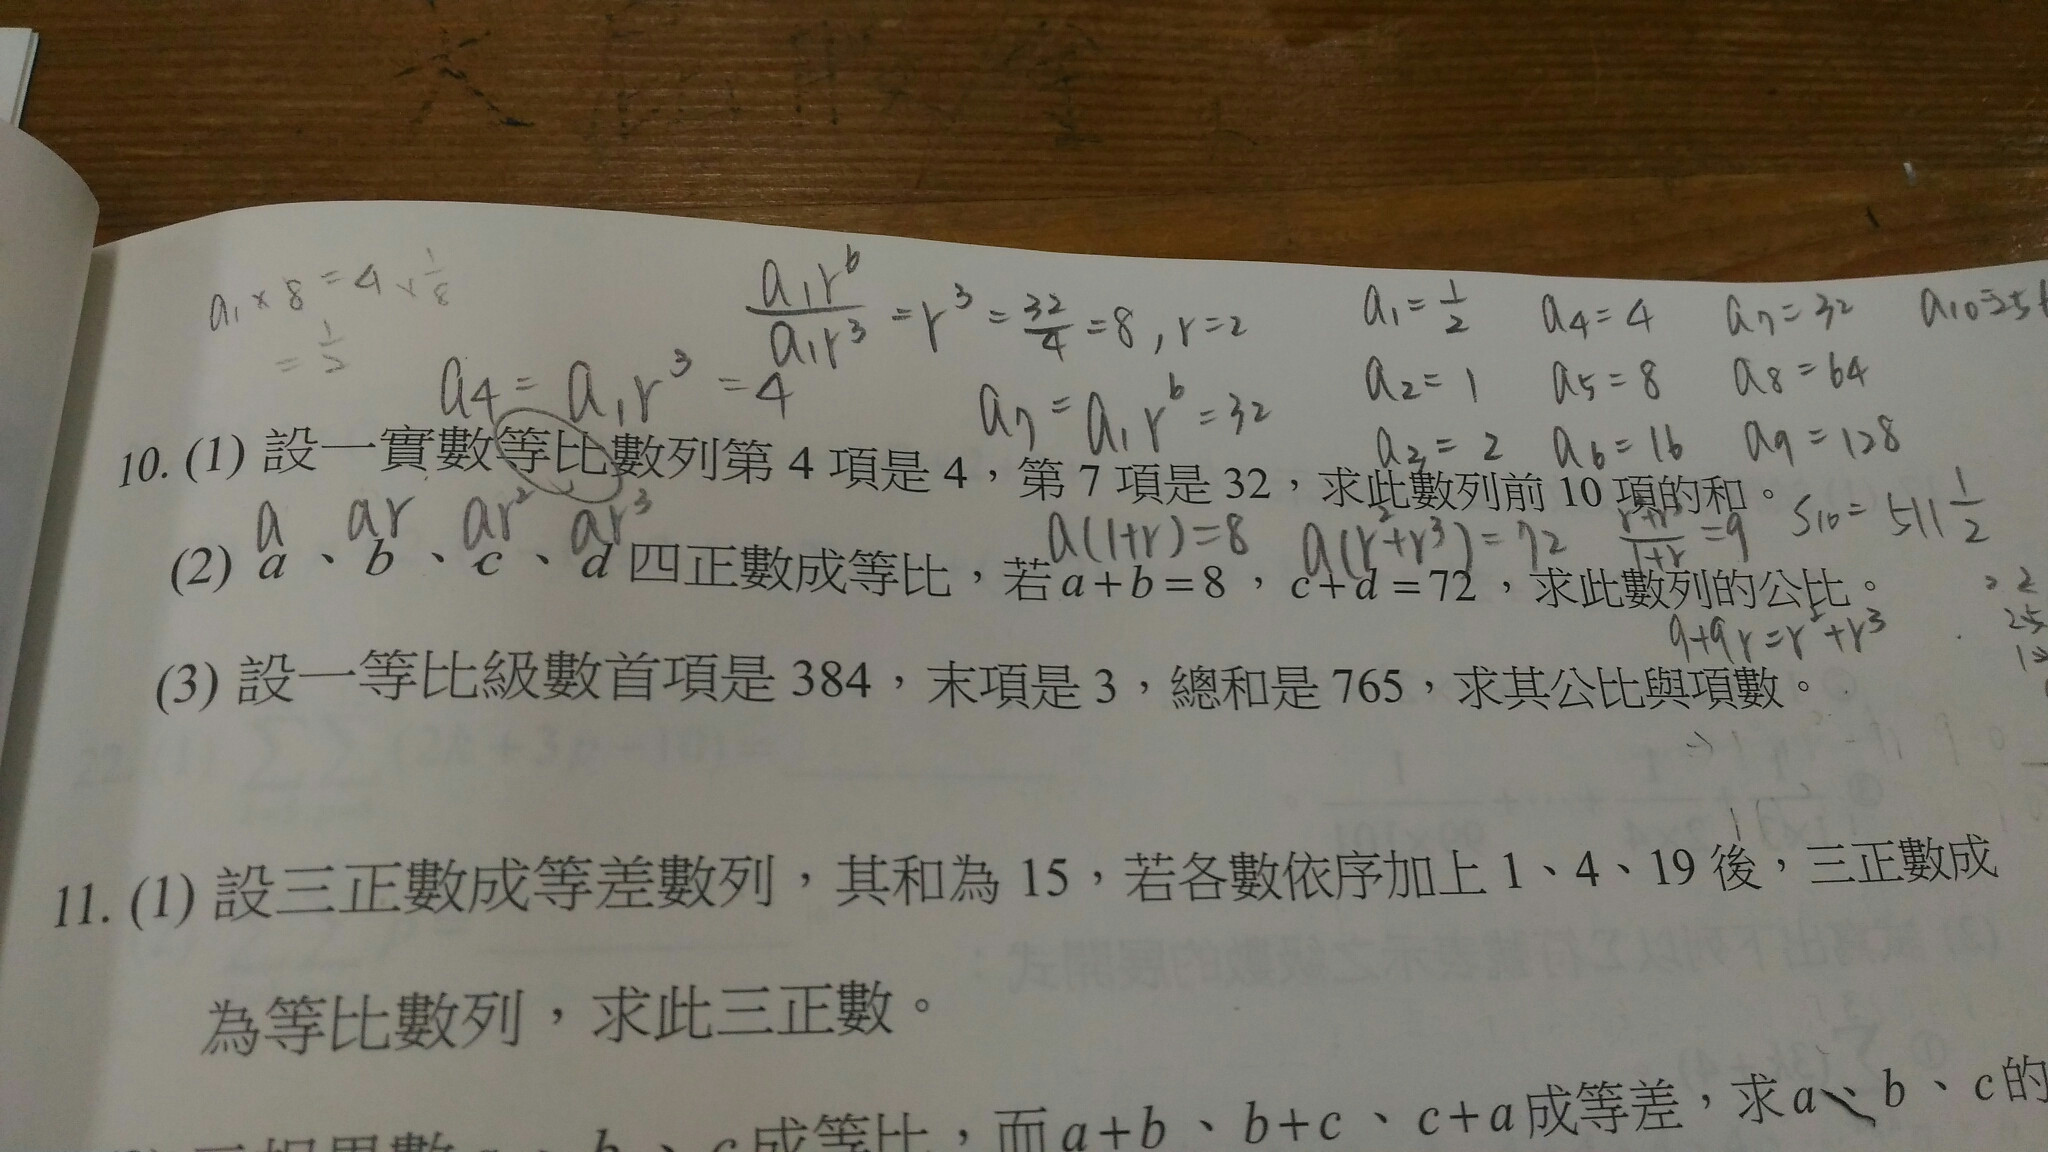 a₁ × 8 = 4 × 1/8
= 1/2
a₁r⁶/a₁r³ = r³ = 32/4 = 8 , r = 2
a₁ = 1/2 a₄ = 4 a₇ = 32
a₂ = 1 a₅ = 8 a₈ = 64
a₃ = 2 a₆ = 16 a₉ = 128
a₄ = a₁r³ = 4
a₇ = a₁r⁶ = 32
10. (1) 設一實數等比數列第 4 項是 4，第 7 項是 32，求此數列前 10 項的和。
S₁₀ = 511 1/2
a ar ar² ar³
a(1+r) = 8 a(r²+r³) = 72 r²+r³/1+r = 9
(2) a、b、c、d 四正數成等比，若 a + b = 8，c + d = 72，求此數列的公比。
9+9r = r²+r³
(3) 設一等比級數首項是 384，末項是 3，總和是 765，求其公比與項數。
11. (1) 設三正數成等差數列，其和為 15，若各數依序加上 1、4、19 後，三正數成
為等比數列，求此三正數。
成等比，而 a + b、b + c、c + a 成等差，求 a、b、c 的